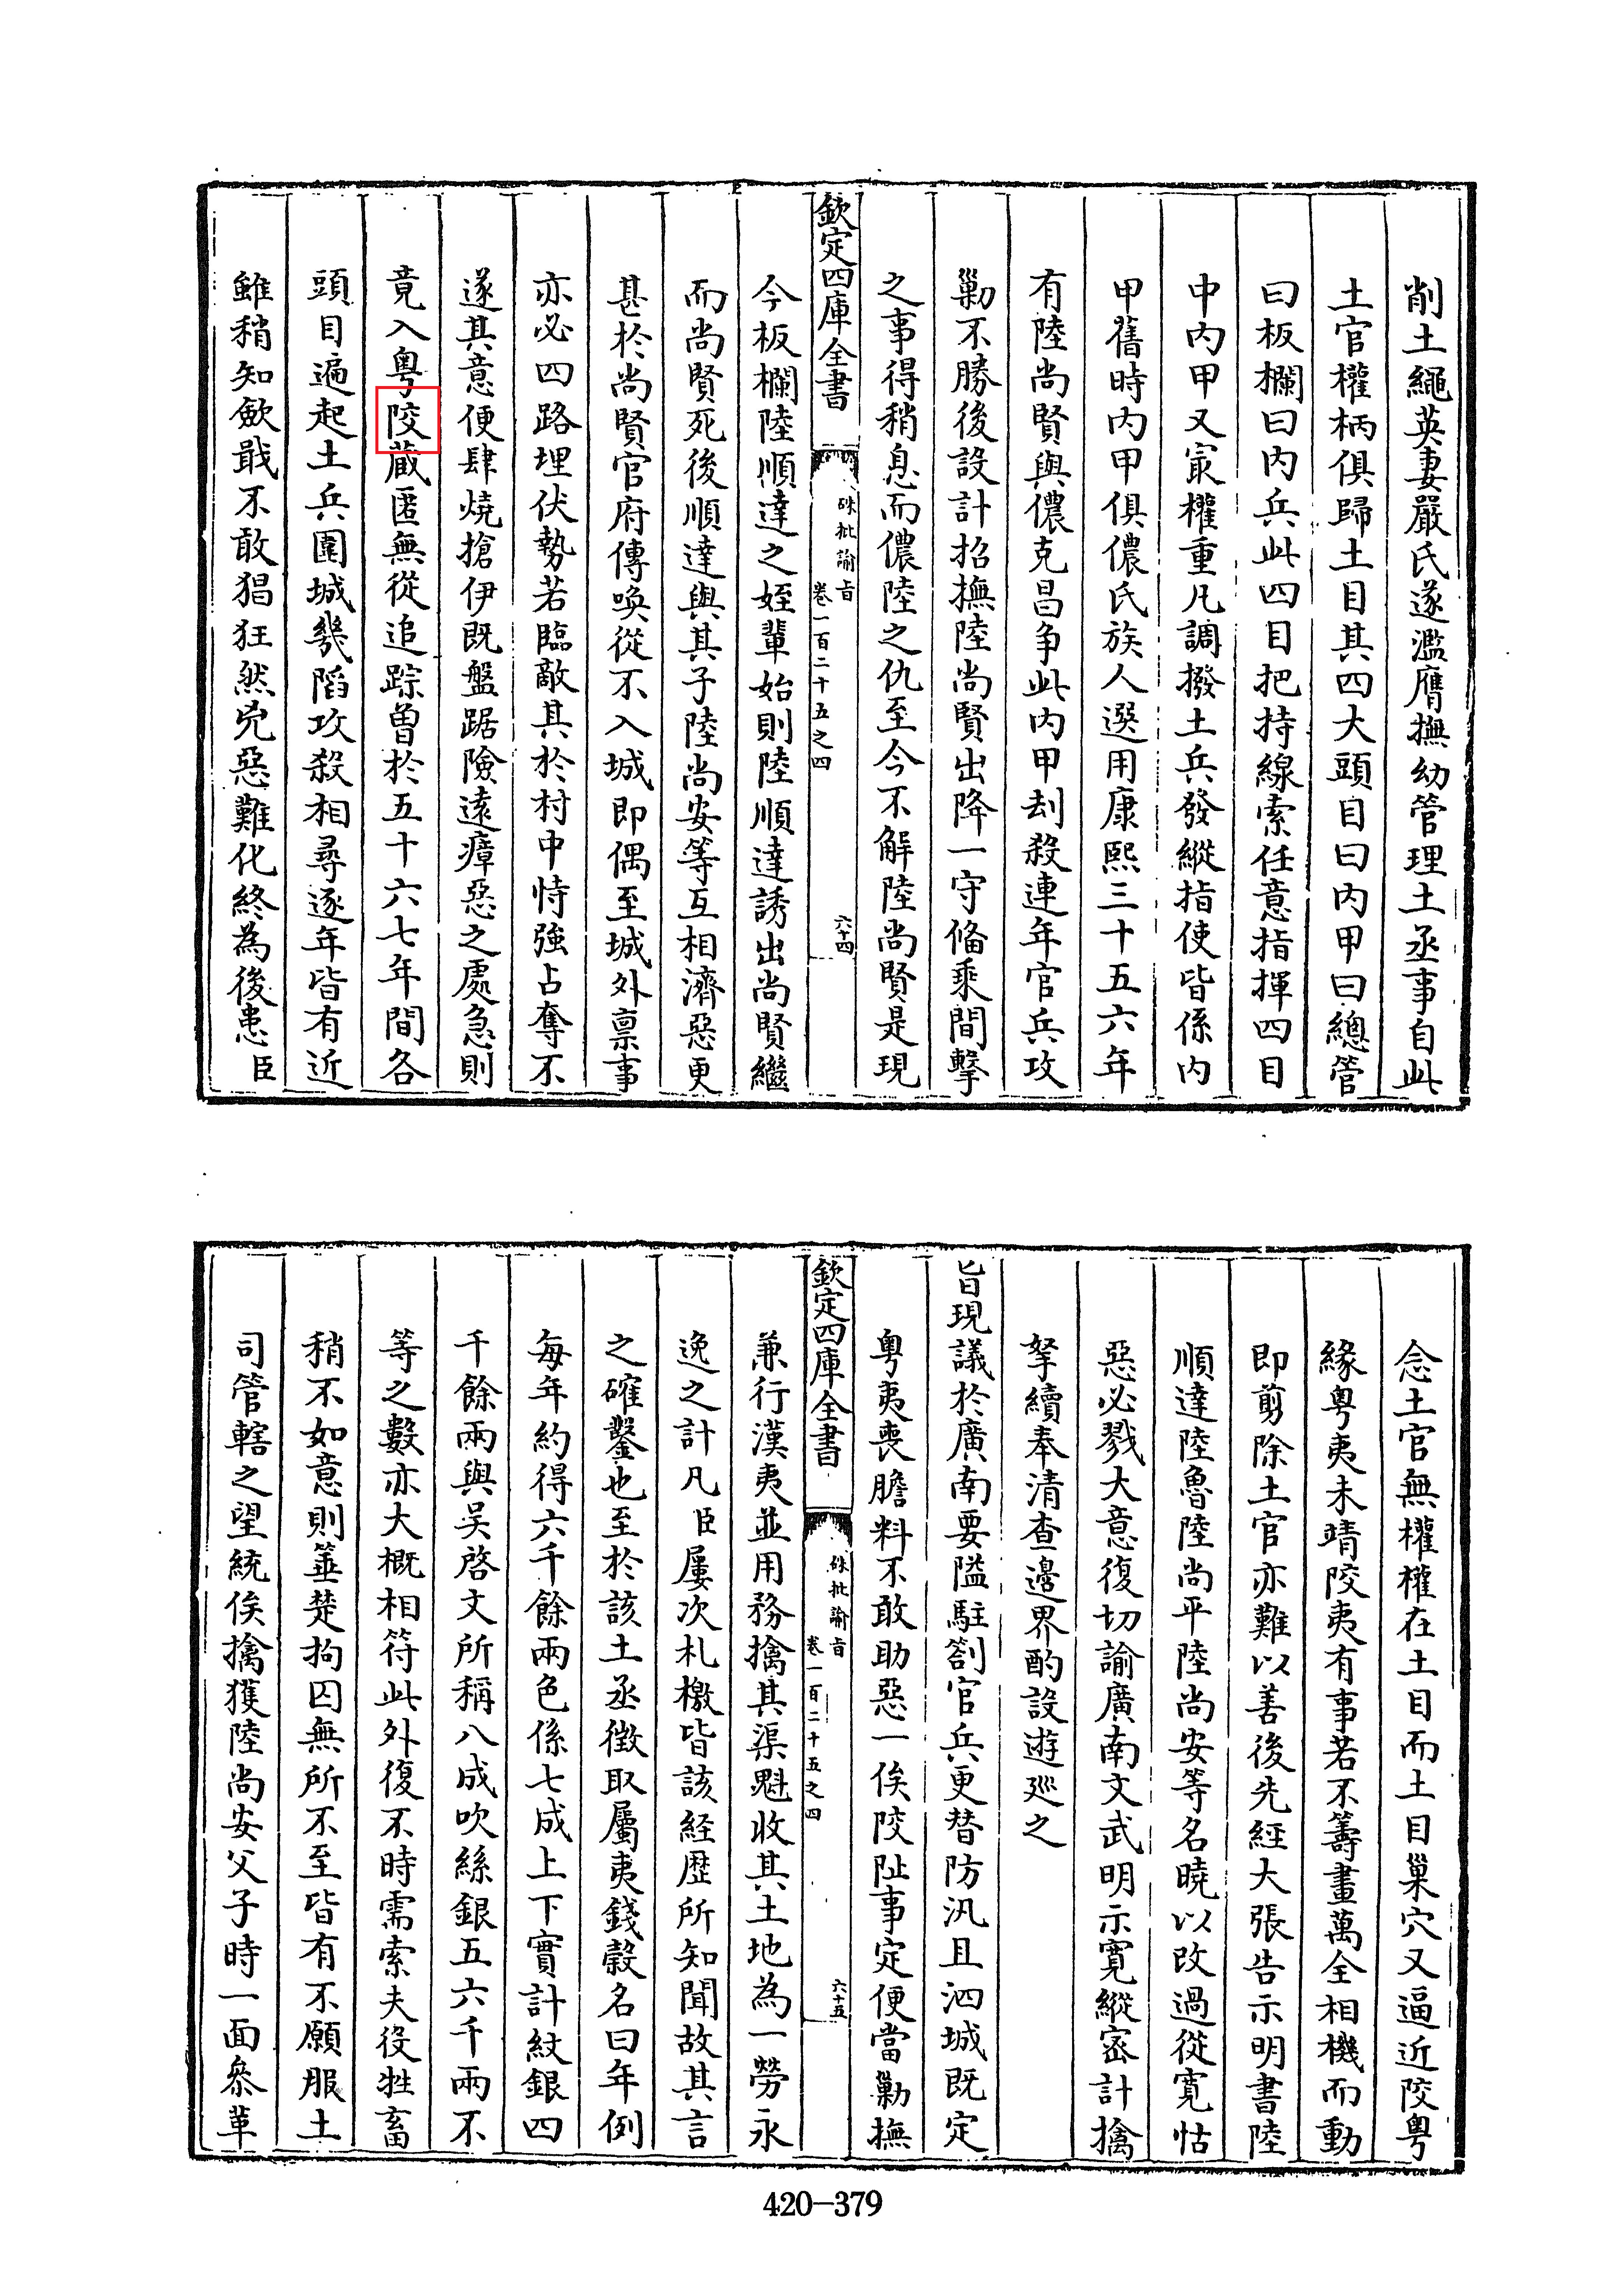 削土繩英妻嚴氏遂濫膺撫幼管理土丞事自此
土官權柄俱歸土目其四大頭目曰内甲曰總管
曰板欄曰内兵此四目把持線索任意指揮四目
中内甲又㝡權重凡調撥土兵發縱指使皆係内
甲舊時内甲俱儂氏族人選用康熙三十五六年
有陸尚賢與儂克昌争此内甲刦殺連年官兵攻
勦不勝後設計招撫陸尚賢出降一守俻乘間擊
之事得稍息而儂陸之仇至今不解陸尚賢是現
欽定四庫全書
硃批諭旨
卷一百二十五之四
六十四
今板欄陸順達之姪輩始則陸順達誘出尚賢繼
而尚賢死後順達與其子陸尚安等互相濟惡更
甚於尚賢官府傳喚從不入城即偶至城外禀事
亦必四路埋伏勢若臨敵其於村中恃強占奪不
遂其意便肆燒搶伊既盤踞險遠瘴惡之處急則
竟入粤䧍蔵匿無從追踪曾於五十六七年間各
頭目遍起土兵圍城幾䧟攻殺相尋逐年皆有近
雖稍知歛戢不敢猖狂然兇惡難化終為後患臣
念土官無權權在土目而土目巢穴又逼近䧍粤
緣粤夷未靖䧍夷有事若不籌畫萬全相機而動
即剪除土官亦難以善後先經大張告示明書陸
順達陸魯陸尚平陸尚安等名曉以改過從寛怙
惡必戮大意復切諭廣南文武明示寛縱宻計擒
拏續奉清查邉界酌設遊廵之
旨現議於廣南要隘駐劄官兵更替防汛且泗城既定
粤夷喪膽料不敢助惡一俟䧍阯事定便當勦撫
欽定四庫全書
硃批諭旨
卷一百二十五之四
六十五
兼行漢夷並用務擒其渠魁收其土地為一勞永
逸之計凡臣屢次札檄皆該経歴所知聞故其言
之確鑿也至於該土丞徴取屬夷錢榖名曰年例
每年約得六千餘兩色係七成上下實計紋銀四
千餘兩與吴啓文所稱八成吹絲銀五六千兩不
等之數亦大概相符此外復不時需索夫役牲畜
稍不如意則箠楚拘囚無所不至皆有不願服土
司管轄之望統俟擒獲陸尚安父子時一面叅革
420-379